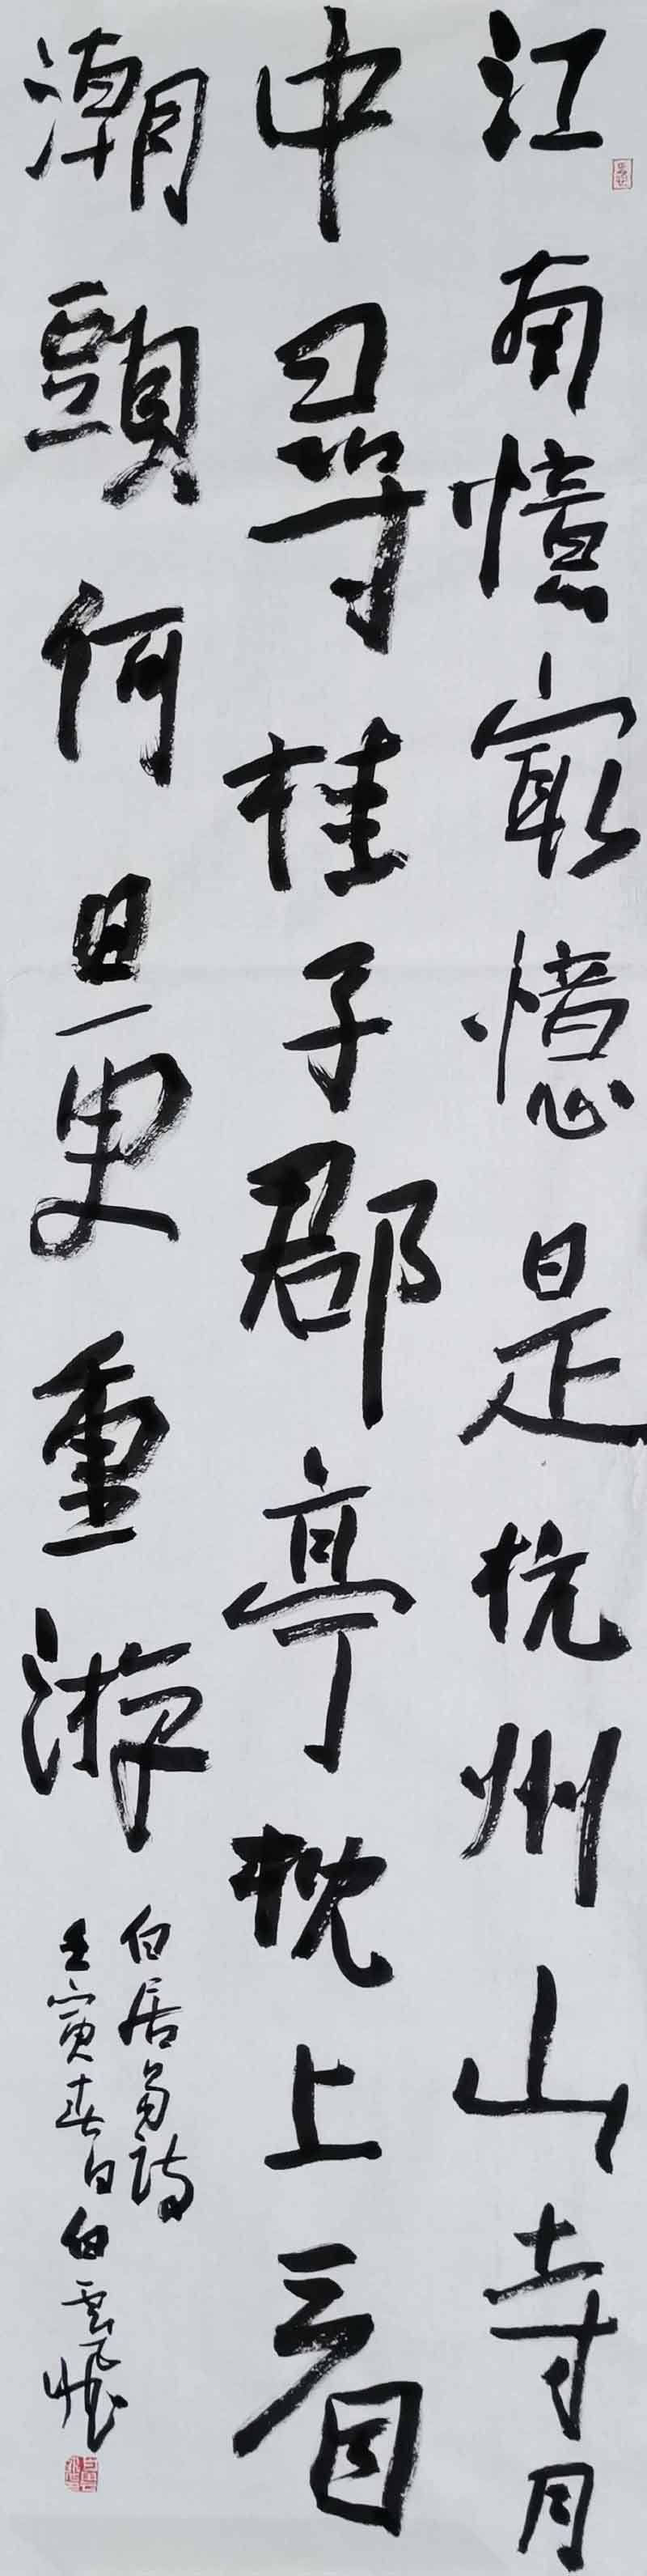 江南憶最憶是杭州山寺月
中尋桂子郡亭枕上看
潮頭何日更重游
白居易詩
壬寅春日白雲飛